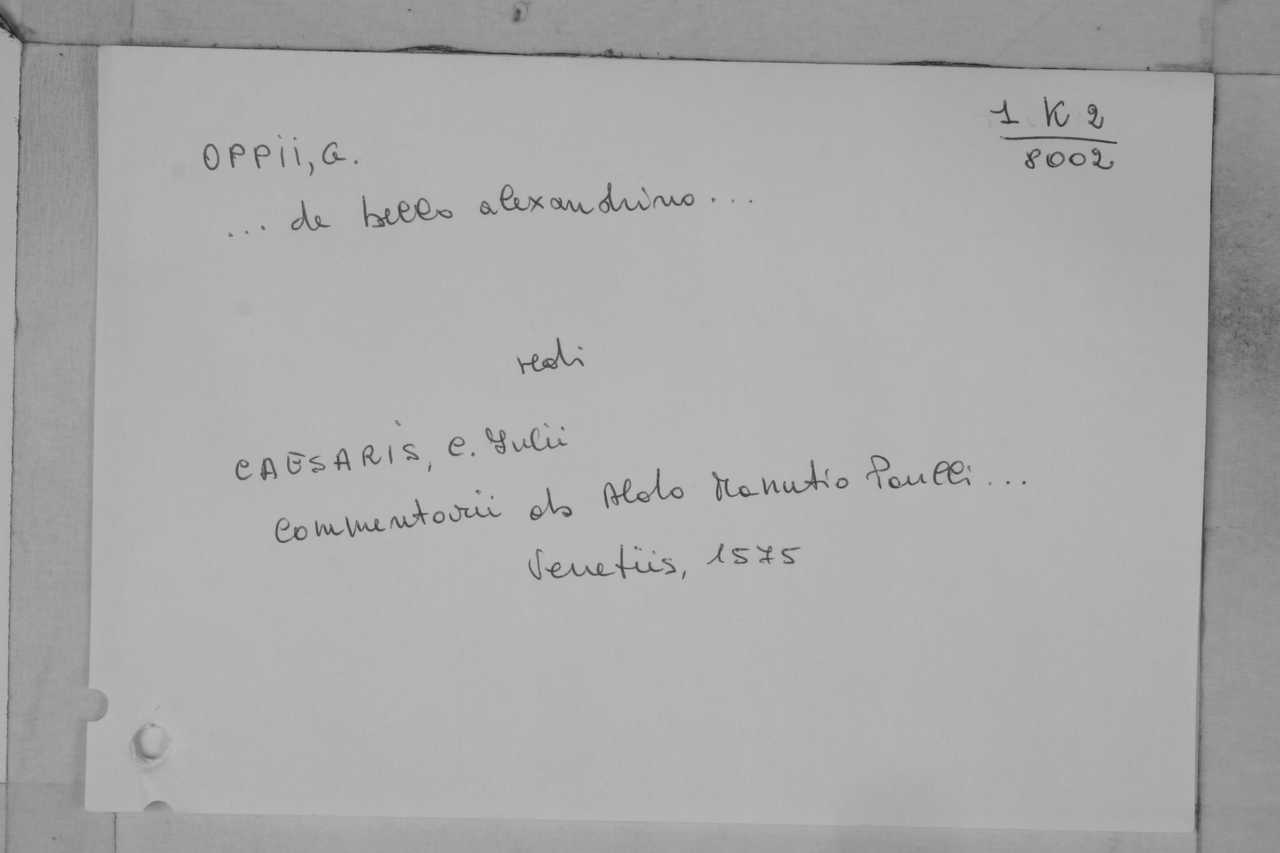 1 K 2
8002
OPPII, G.
... de bello alexandrino ...
vedi
CAESARIS, C. Iulii
Commentarii ab Aldo Manutio Paulli ...
Venetiis, 1575